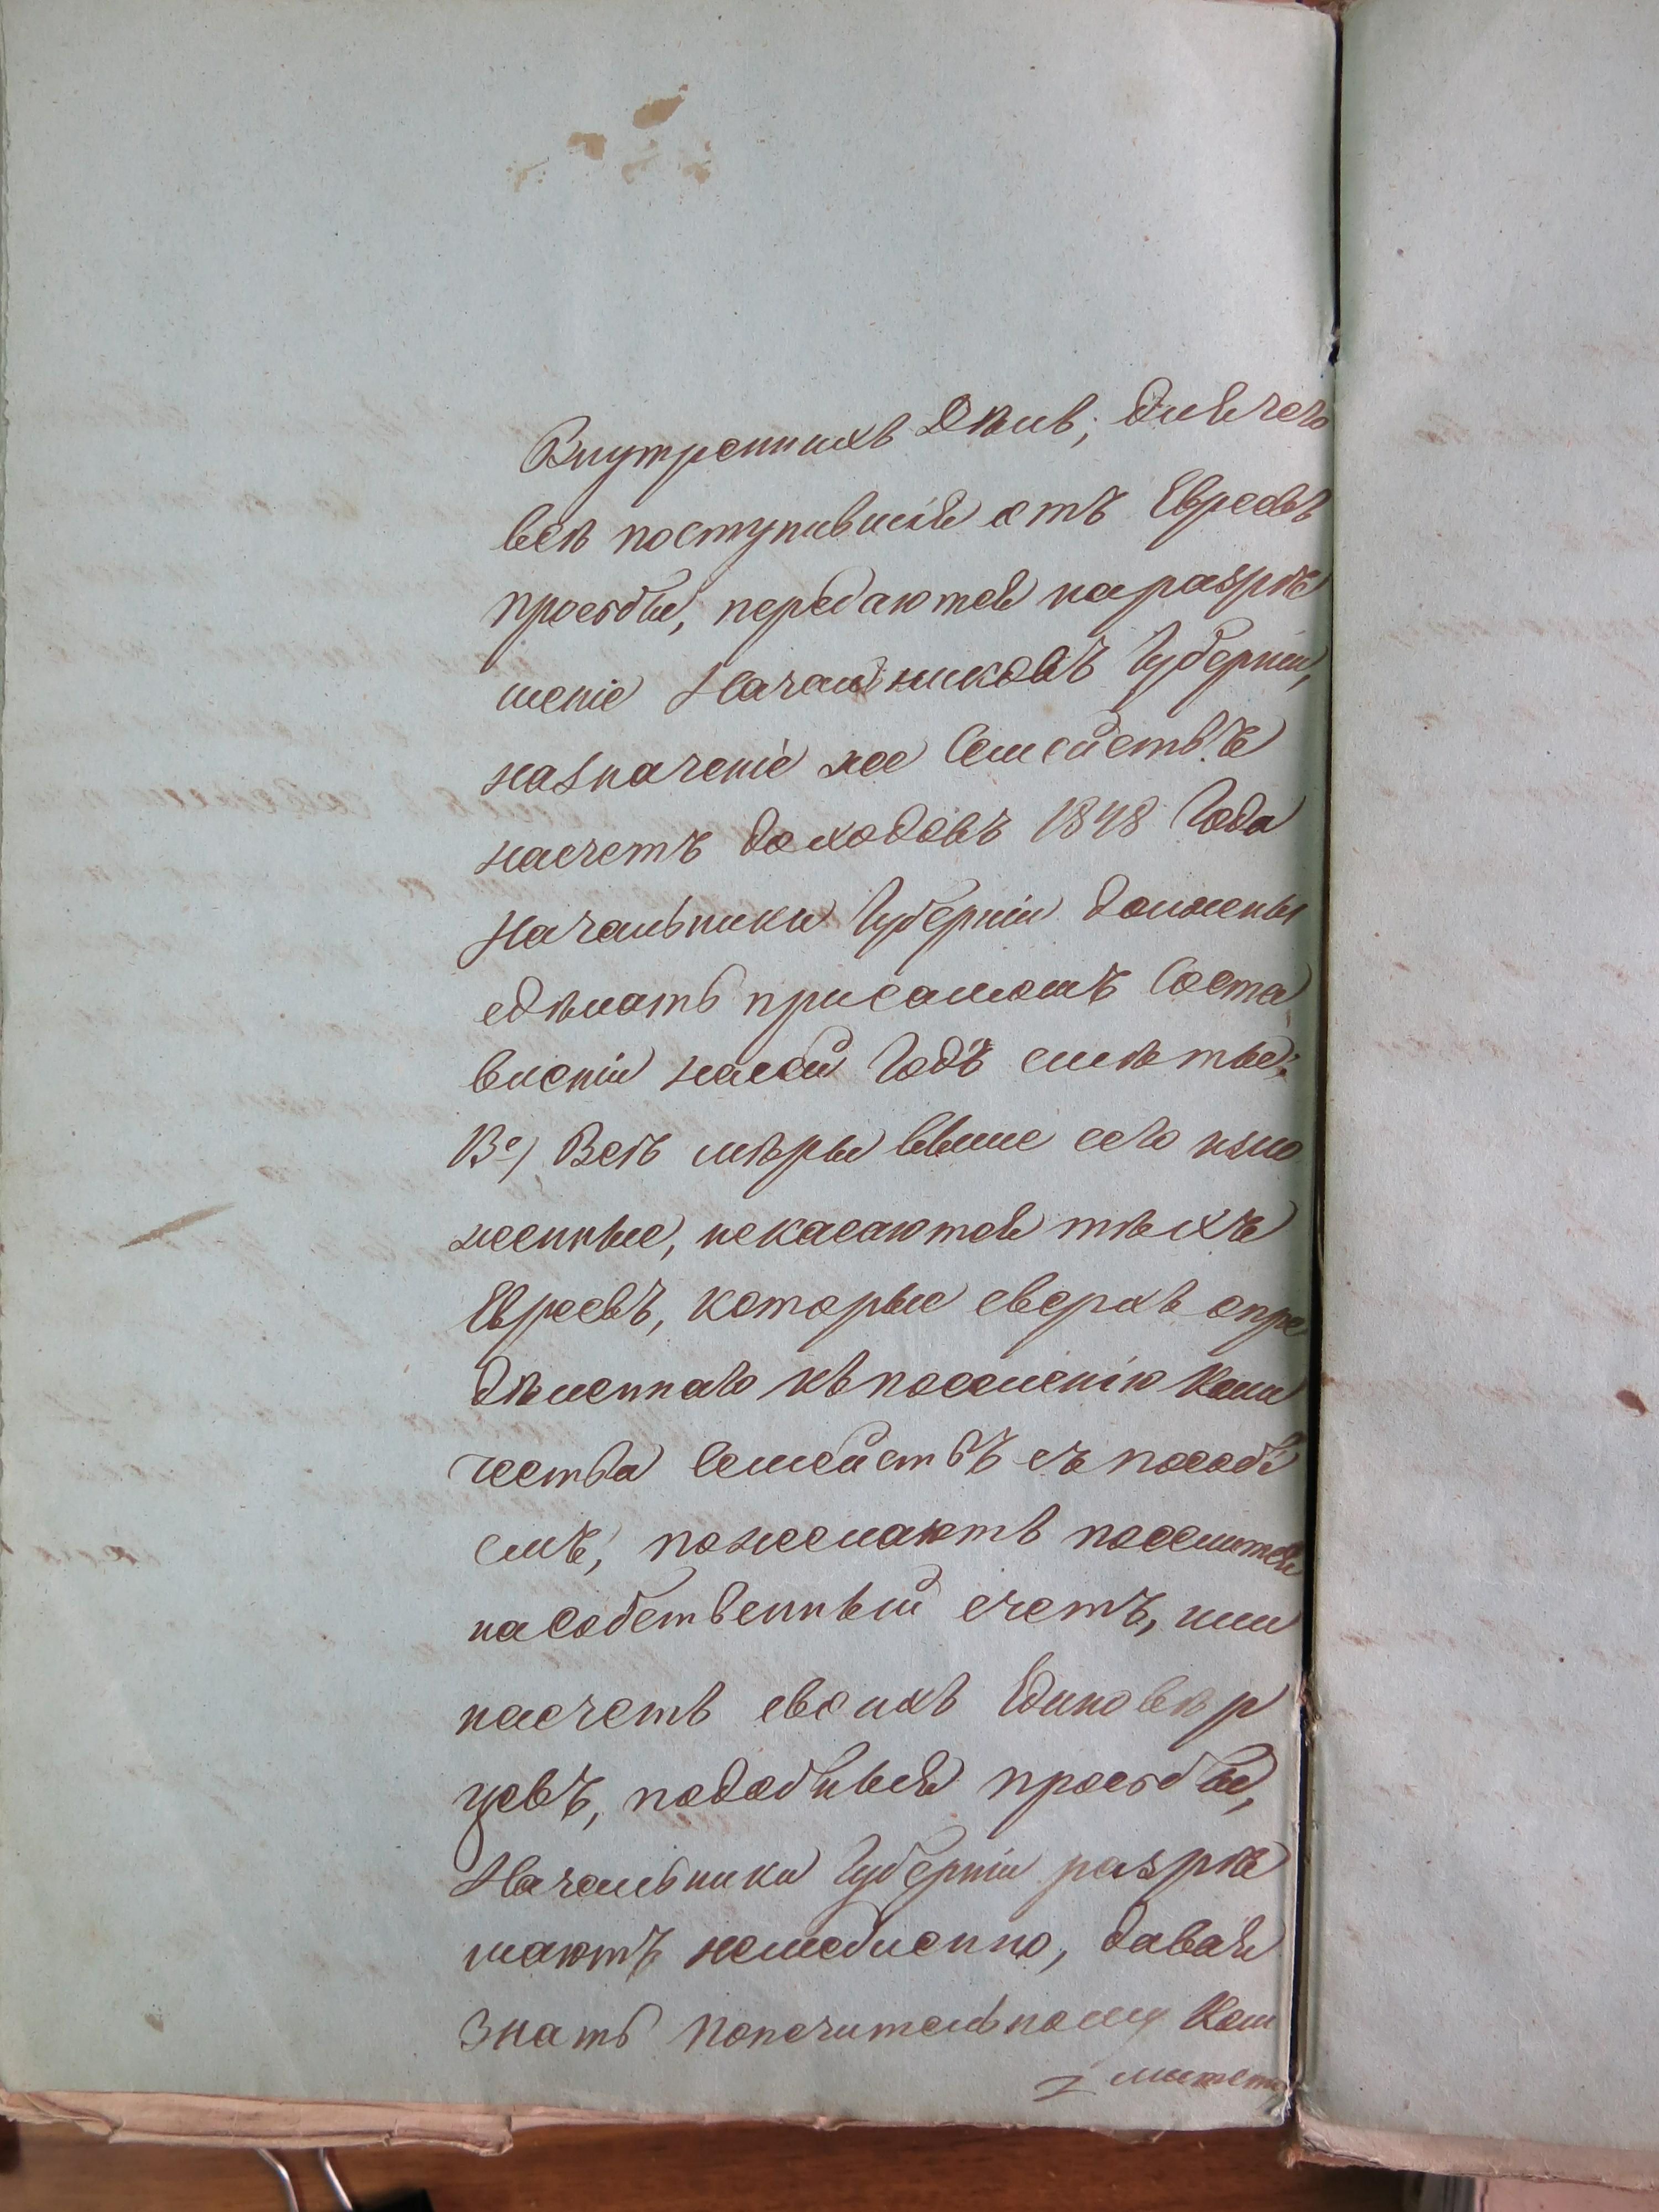 Внутреннихъ Дѣлъ; длячего
всѣ поступившія отъ Евреевъ
просьбы, передаются наразрѣ
шеніе Начальниковъ Губерніи,
назначеніе же Семействъ
насчетъ доходовъ 1848 Года
Начальники Губерніи должны
сдѣлать присамомъ Соста
вленіи насей Годъ смѣты;
В<sup>е</sup>) Всѣ мѣры выше сего изло
женные, некасаются тѣхъ
Евреевъ, которые сверхъ опре
дѣленнаго къ поселенію коли
чества Семействъ съ пособі
емъ, пожелаютъ поселиться
насобственный счетъ, или
насчетъ своихъ Единовѣр
цевъ, подобныя просьбы,
Начальники Губерніи разрѣ
шаютъ немедленно, давая
знать Попечительному Ком
митету